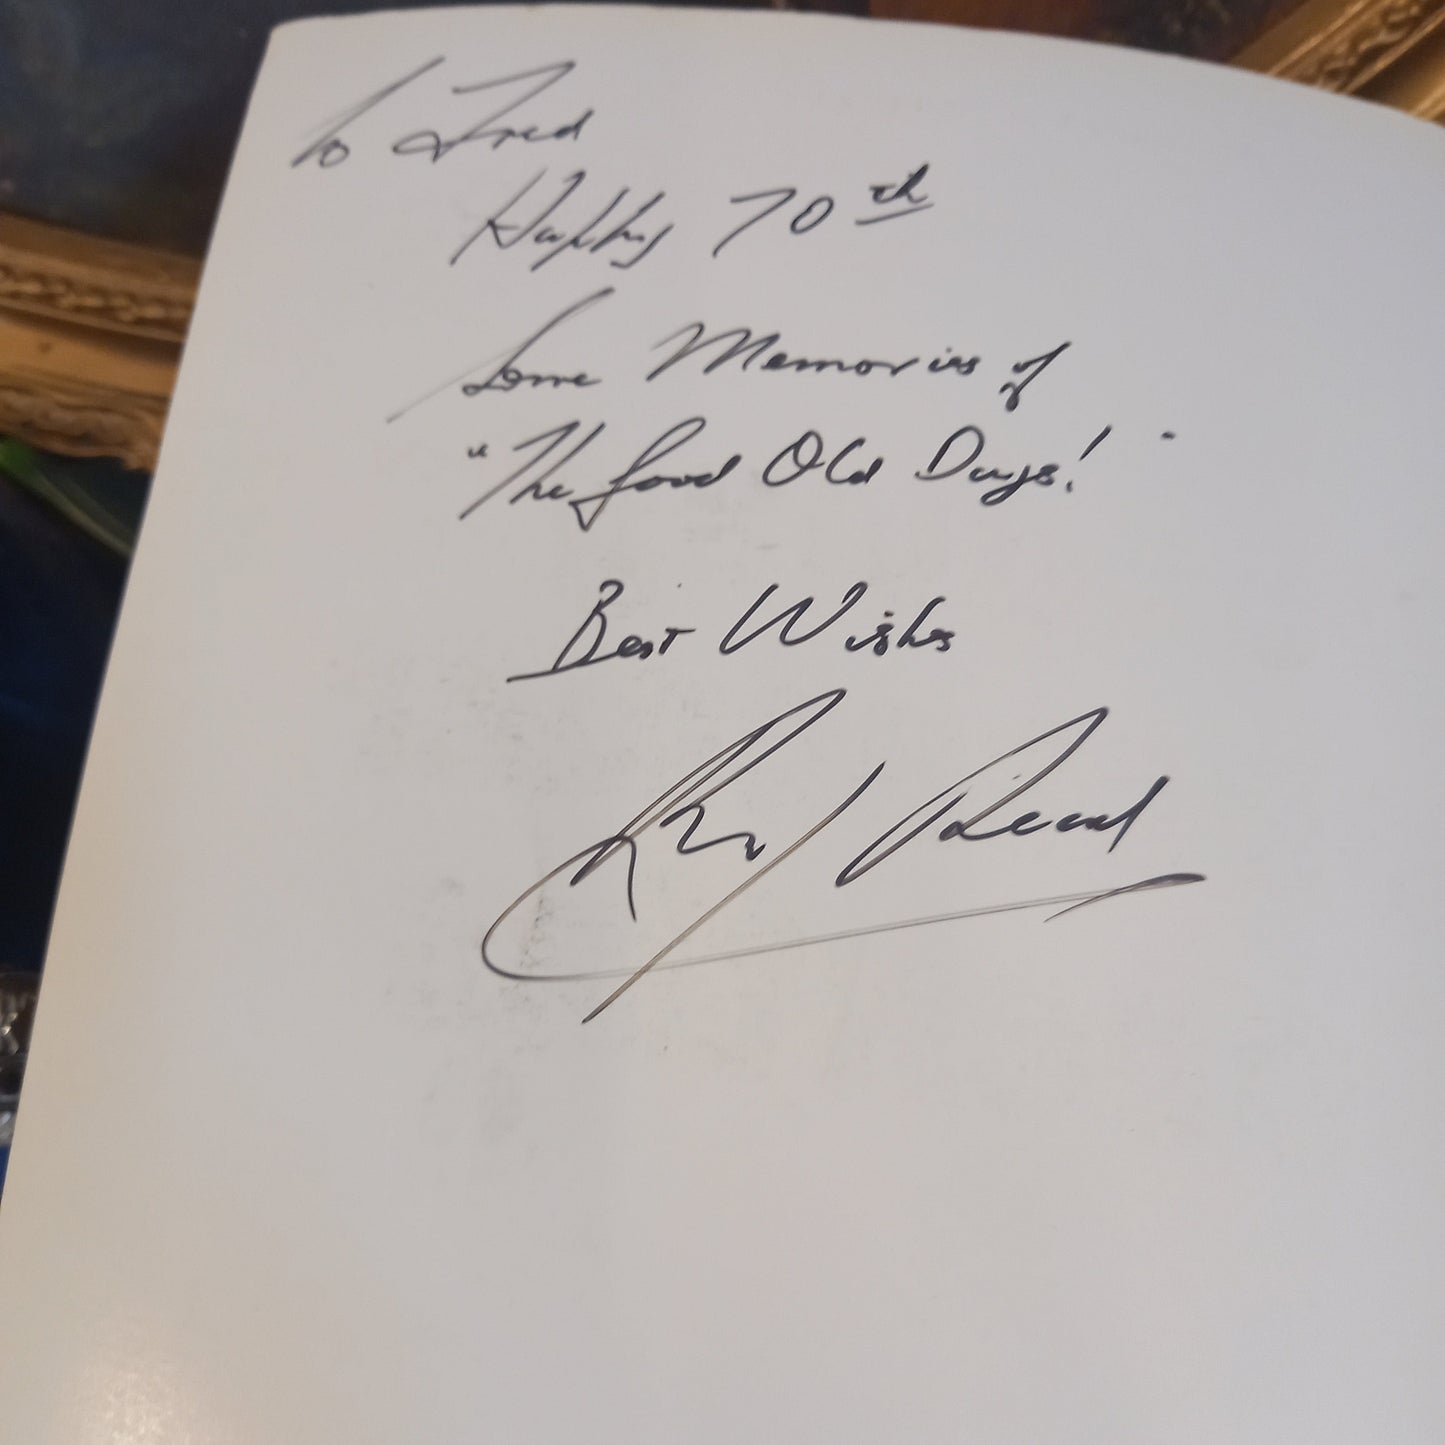 To Fred
Happy 70th
Some Memories of
"The Good Old Days!"
Best Wishes
Read